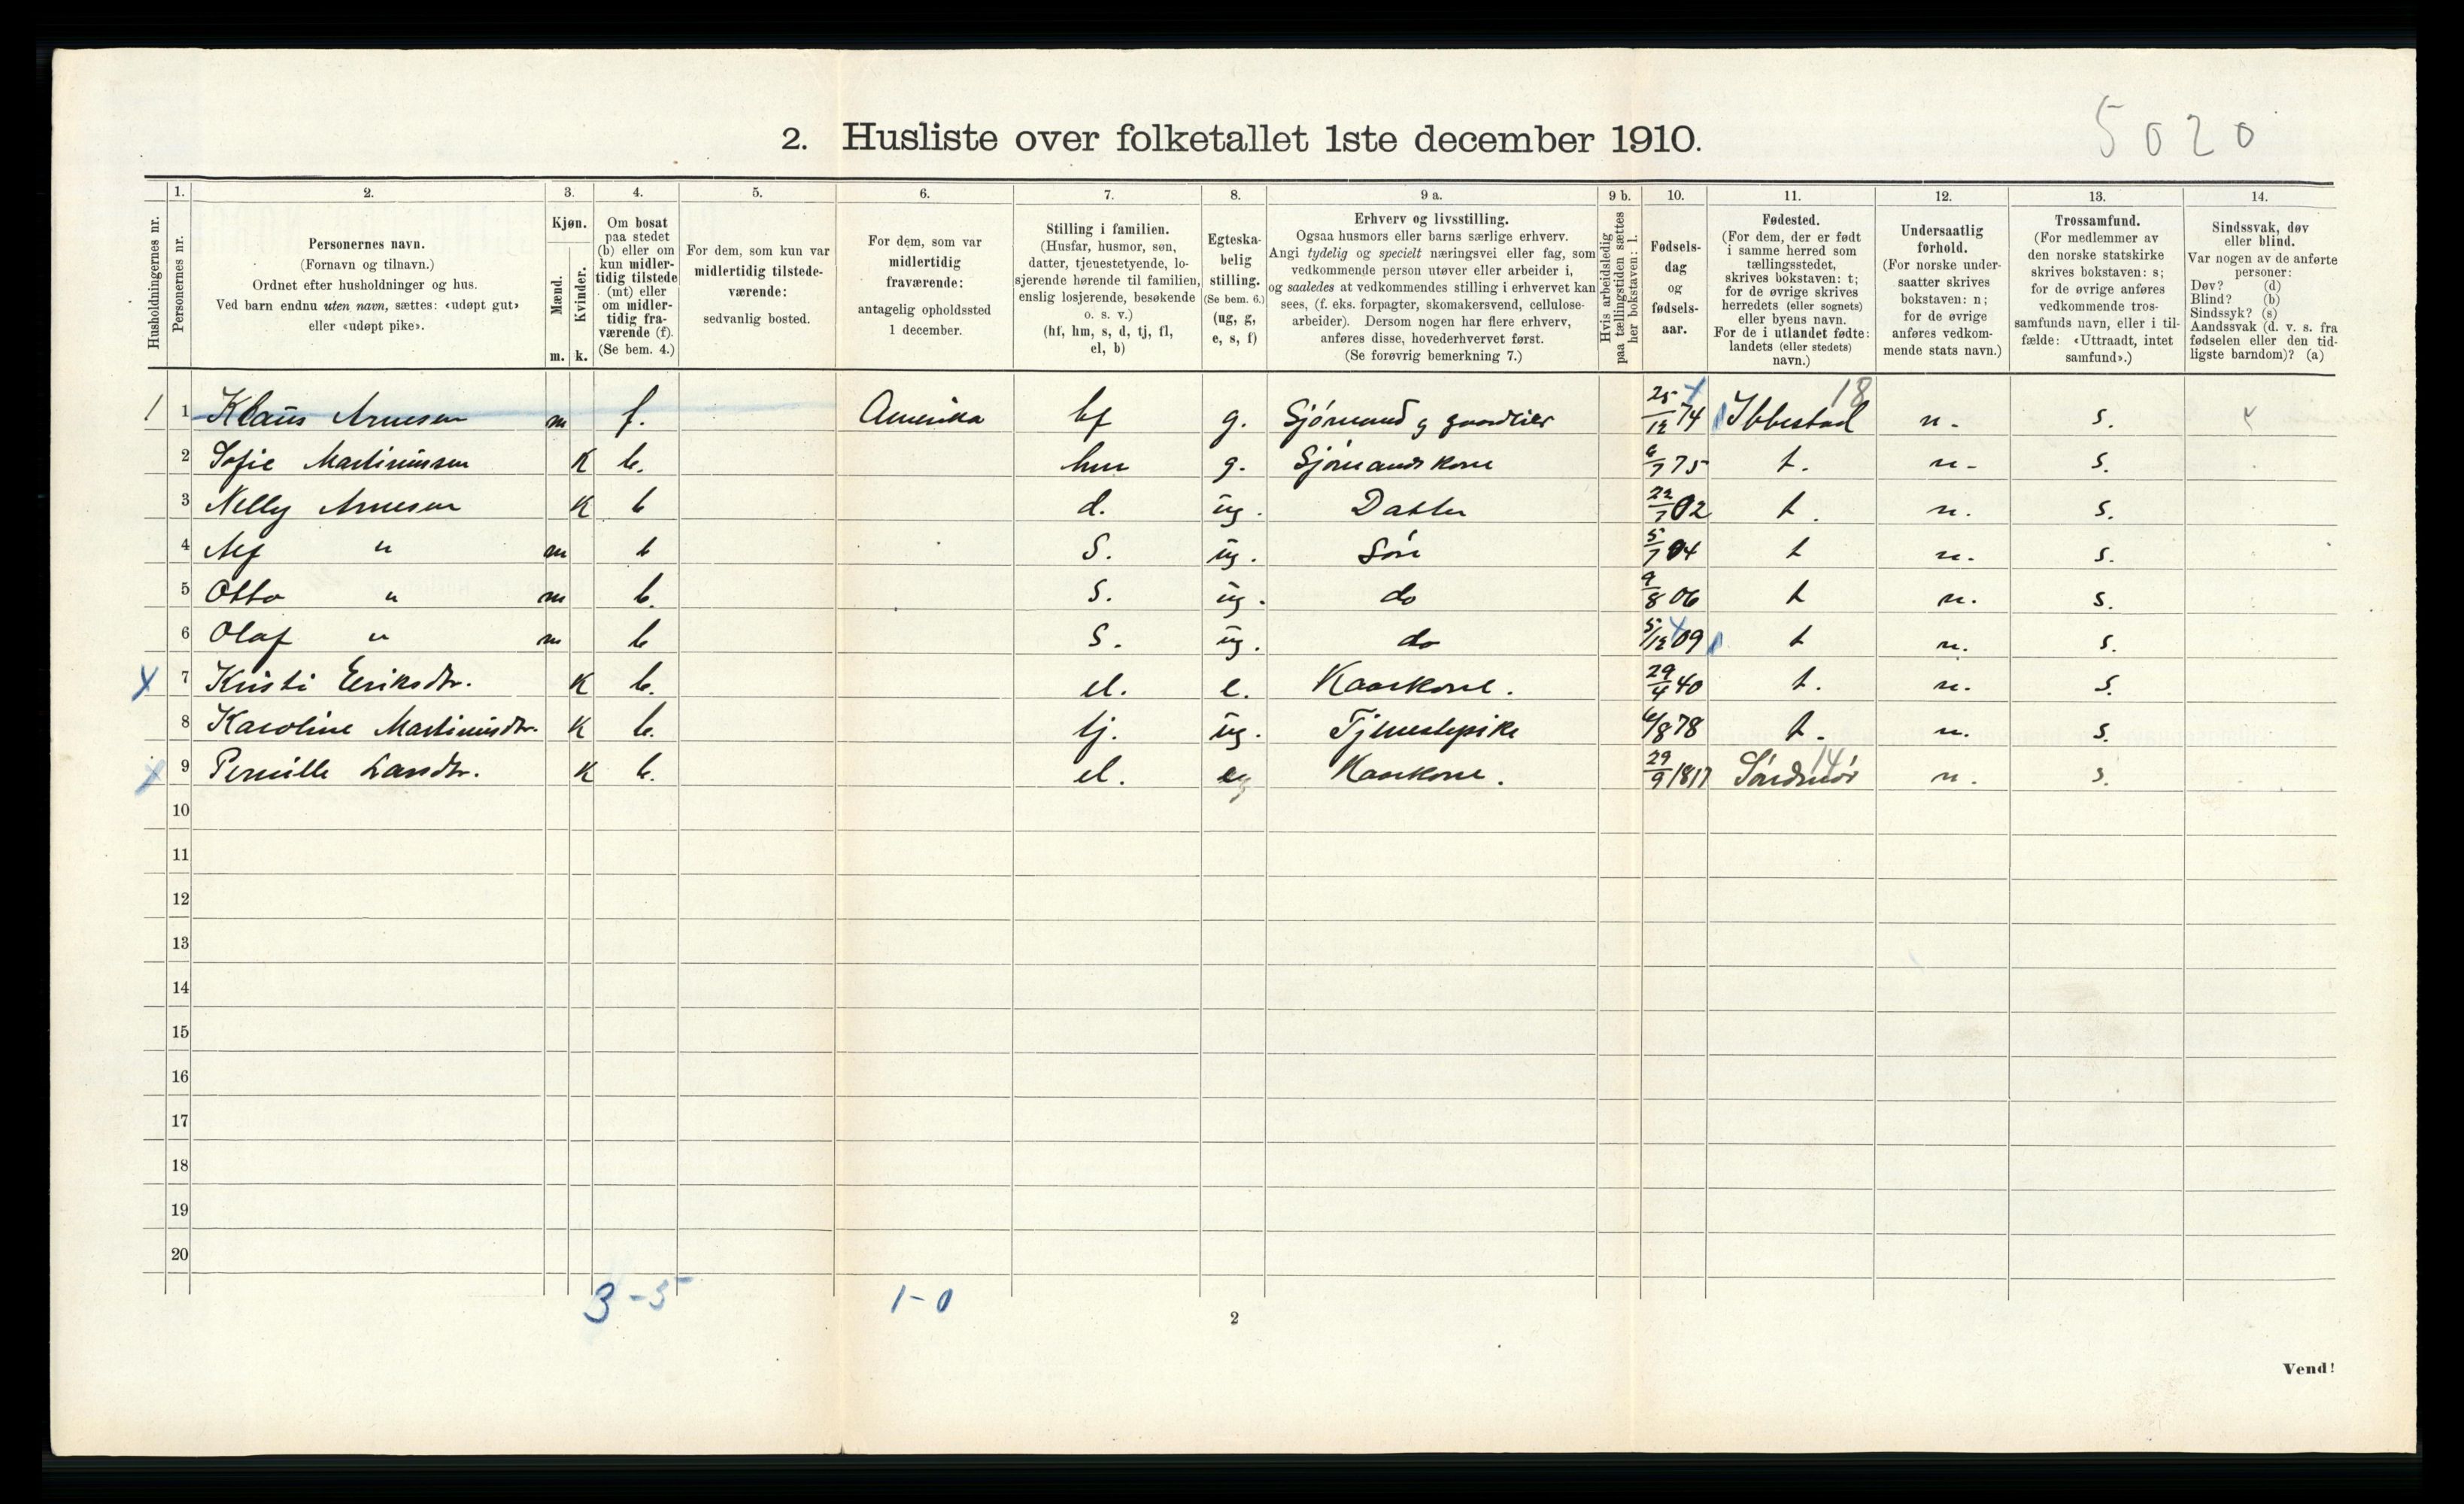 2. Husliste over folketallet 1ste december 1910.
5020
1. 2. 3. 4. 5. 6. 7. 8. 9 a. 9 b. 10. 11. 12. 13. 14.
Husholdningernes nr.
Personernes nr.
Personernes navn.
(Fornavn og tilnavn.)
Ordnet efter husholdninger og hus.
Ved barn endnu uten navn, sættes: «udøpt gut»
eller «udøpt pike».
Kjøn.
Mænd.
Kvinder.
m. k.
Om bosat
paa stedet
(b) eller om
kun midler-
tidig tilstede
(mt) eller
om midler-
tidig fra-
værende (f).
(Se bem. 4.)
For dem, som kun var
midlertidig tilstede-
værende:
sedvanlig bosted.
For dem, som var
midlertidig
fraværende:
antagelig opholdssted
1 december.
Stilling i familien.
(Husfar, husmor, søn,
datter, tjenestetyende, lo-
sjerende hørende til familien,
enslig losjerende, besøkende
o. s. v.)
(hf, hm, s, d, tj, fl,
el, b)
Egteska-
belig
stilling.
(Se bem. 6.)
(ug, g,
e, s, f)
Erhverv og livsstilling.
Ogsaa husmors eller barns særlige erhverv.
Angi tydelig og specielt næringsvei eller fag, som
vedkommende person utøver eller arbeider i,
og saaledes at vedkommendes stilling i erhvervet kan
sees, (f. eks. forpagter, skomakersvend, cellulose-
arbeider). Dersom nogen har flere erhverv,
anføres disse, hovederhvervet først.
(Se forøvrig bemerkning 7.)
Hvis arbeidsledig
paa tællingstiden sættes
her bokstaven: l.
Fødsels-
dag
og
fødsels-
aar.
Fødested.
(For dem, der er født
i samme herred som
tællingsstedet,
skrives bokstaven: t;
for de øvrige skrives
herredets (eller sognets)
eller byens navn.
For de i utlandet fødte:
landets (eller stedets)
navn.)
Undersaatlig
forhold.
(For norske under-
saatter skrives
bokstaven: n;
for de øvrige
anføres vedkom-
mende stats navn.)
Trossamfund.
(For medlemmer av
den norske statskirke
skrives bokstaven: s;
for de øvrige anføres
vedkommende tros-
samfunds navn, eller i til-
fælde: «Uttraadt, intet
samfund».)
Sindssvak, døv
eller blind.
Var nogen av de anførte
personer:
Døv? (d)
Blind? (b)
Sindssyk? (s)
Aandssvak (d. v. s. fra
fødselen eller den tid-
ligste barndom)? (a)
1 1 Klaus Arnesen m f. Amerika hf g. Sjømand 25/12 74 Ibbestad 18 n. s.
2 Sofie Martinussen K b. hm g. Sjømandskone 6/7 75 t. n. s.
3 Nelly Arnesen K b d. ug. Datter 22/7 02 t. n. s.
4 Alf " m b S. ug. Søn 5/7 04 t n. s.
5 Otto " m b. S. ug. do 9/8 06 t n. s.
6 Olaf " m b S. ug. do 5/12 09 t n. s.
7 Kristi Eriksdtr. K b. el. e. Kaarkone. 29/4 40 t. n. s.
8 Karoline Martinusdtr. K b. tj. ug. Tjenestepike 6/8 78 t. n. s.
9 Pernille Larsdtr. K b. el. Kaarkone. 29/9 1817 Søndmør 14 n. s.
10
11
12
13
14
15
16
17
18
19
20
3-5 1-0
2
Vend!